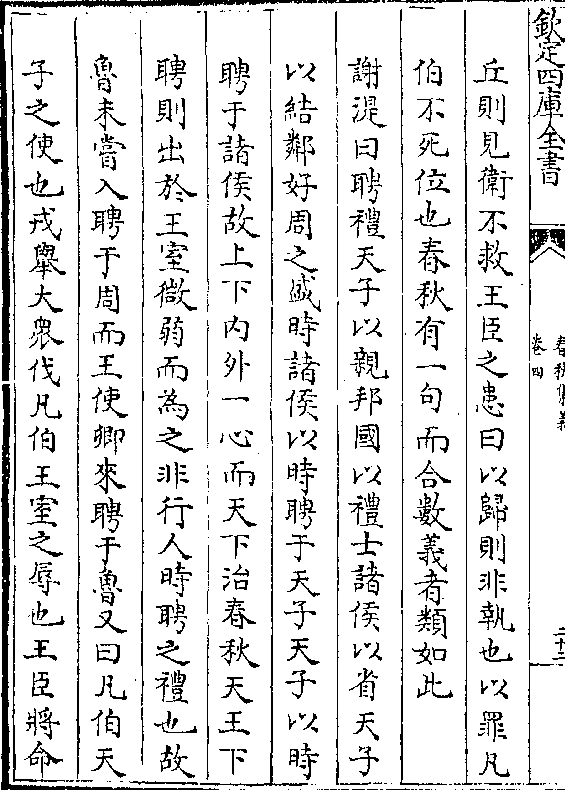 欽定四庫全書
春秋集義
卷四
二十二
丘則見衛不救王臣之患曰以歸則非執也以罪凡
伯不死位也春秋有一句而合數義者類如此
謝湜曰聘禮天子以親邦國以禮士諸侯以省天子
以結鄰好周之盛時諸侯以時聘于天子天子以時
聘于諸侯故上下内外一心而天下治春秋天王下
聘則出於王室微弱而為之非行人時聘之禮也故
魯未嘗入聘于周而王使卿來聘于魯又曰凡伯天
子之使也戎舉大衆伐凡伯王室之辱也王臣將命